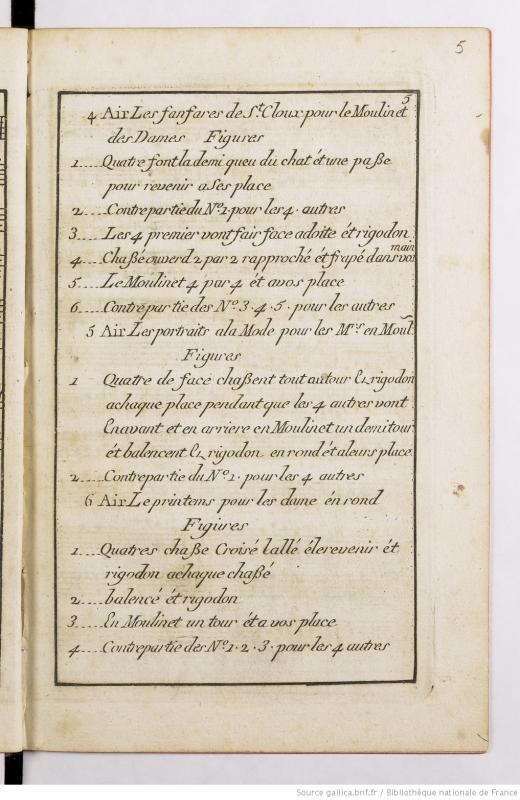 5
5
4 Air Les fanfares de S.t Cloux pour le Moulinet
des Dames Figures
1.... Quatre font la demi queu du chat ét une paße
pour revenir a ses place
2.... Contrepartie du N.o 1. pour les 4. autres
3.... Les 4 premier vont fair face adoite ét rigodon
4.... Chaße ouverd 2 par 2 rapproché ét frapé dans vos
main
5.... Le Moulinet 4 par 4 ét avos place
6.... Contrepartie des N.o 3. 4. 5. pour les autres
5 Air Les portraits ala Mode pour les M.rs en Moul
Figures
1 Quatre de face chaßent tout autour Et rigodon
achaque place pendant que les 4 autres vont
Enavant et en arriere en Moulinet un demi tour
ét balencent Et rigodon en rond ét aleurs place
2.... Contrepartie du N.o 1. pour les 4 autres
6 Air Le printems pour les dame én rond
Figures
1.... Quatres chaße Croisé l'allé éle revenir ét
rigodon achaque chaßé
2.... balencé ét rigodon
3.... En Moulinet un tour ét a vos place
4.... Contrepartie des N.o 1. 2. 3. pour les 4 autres
Source gallica.bnf.fr / Bibliothèque nationale de France